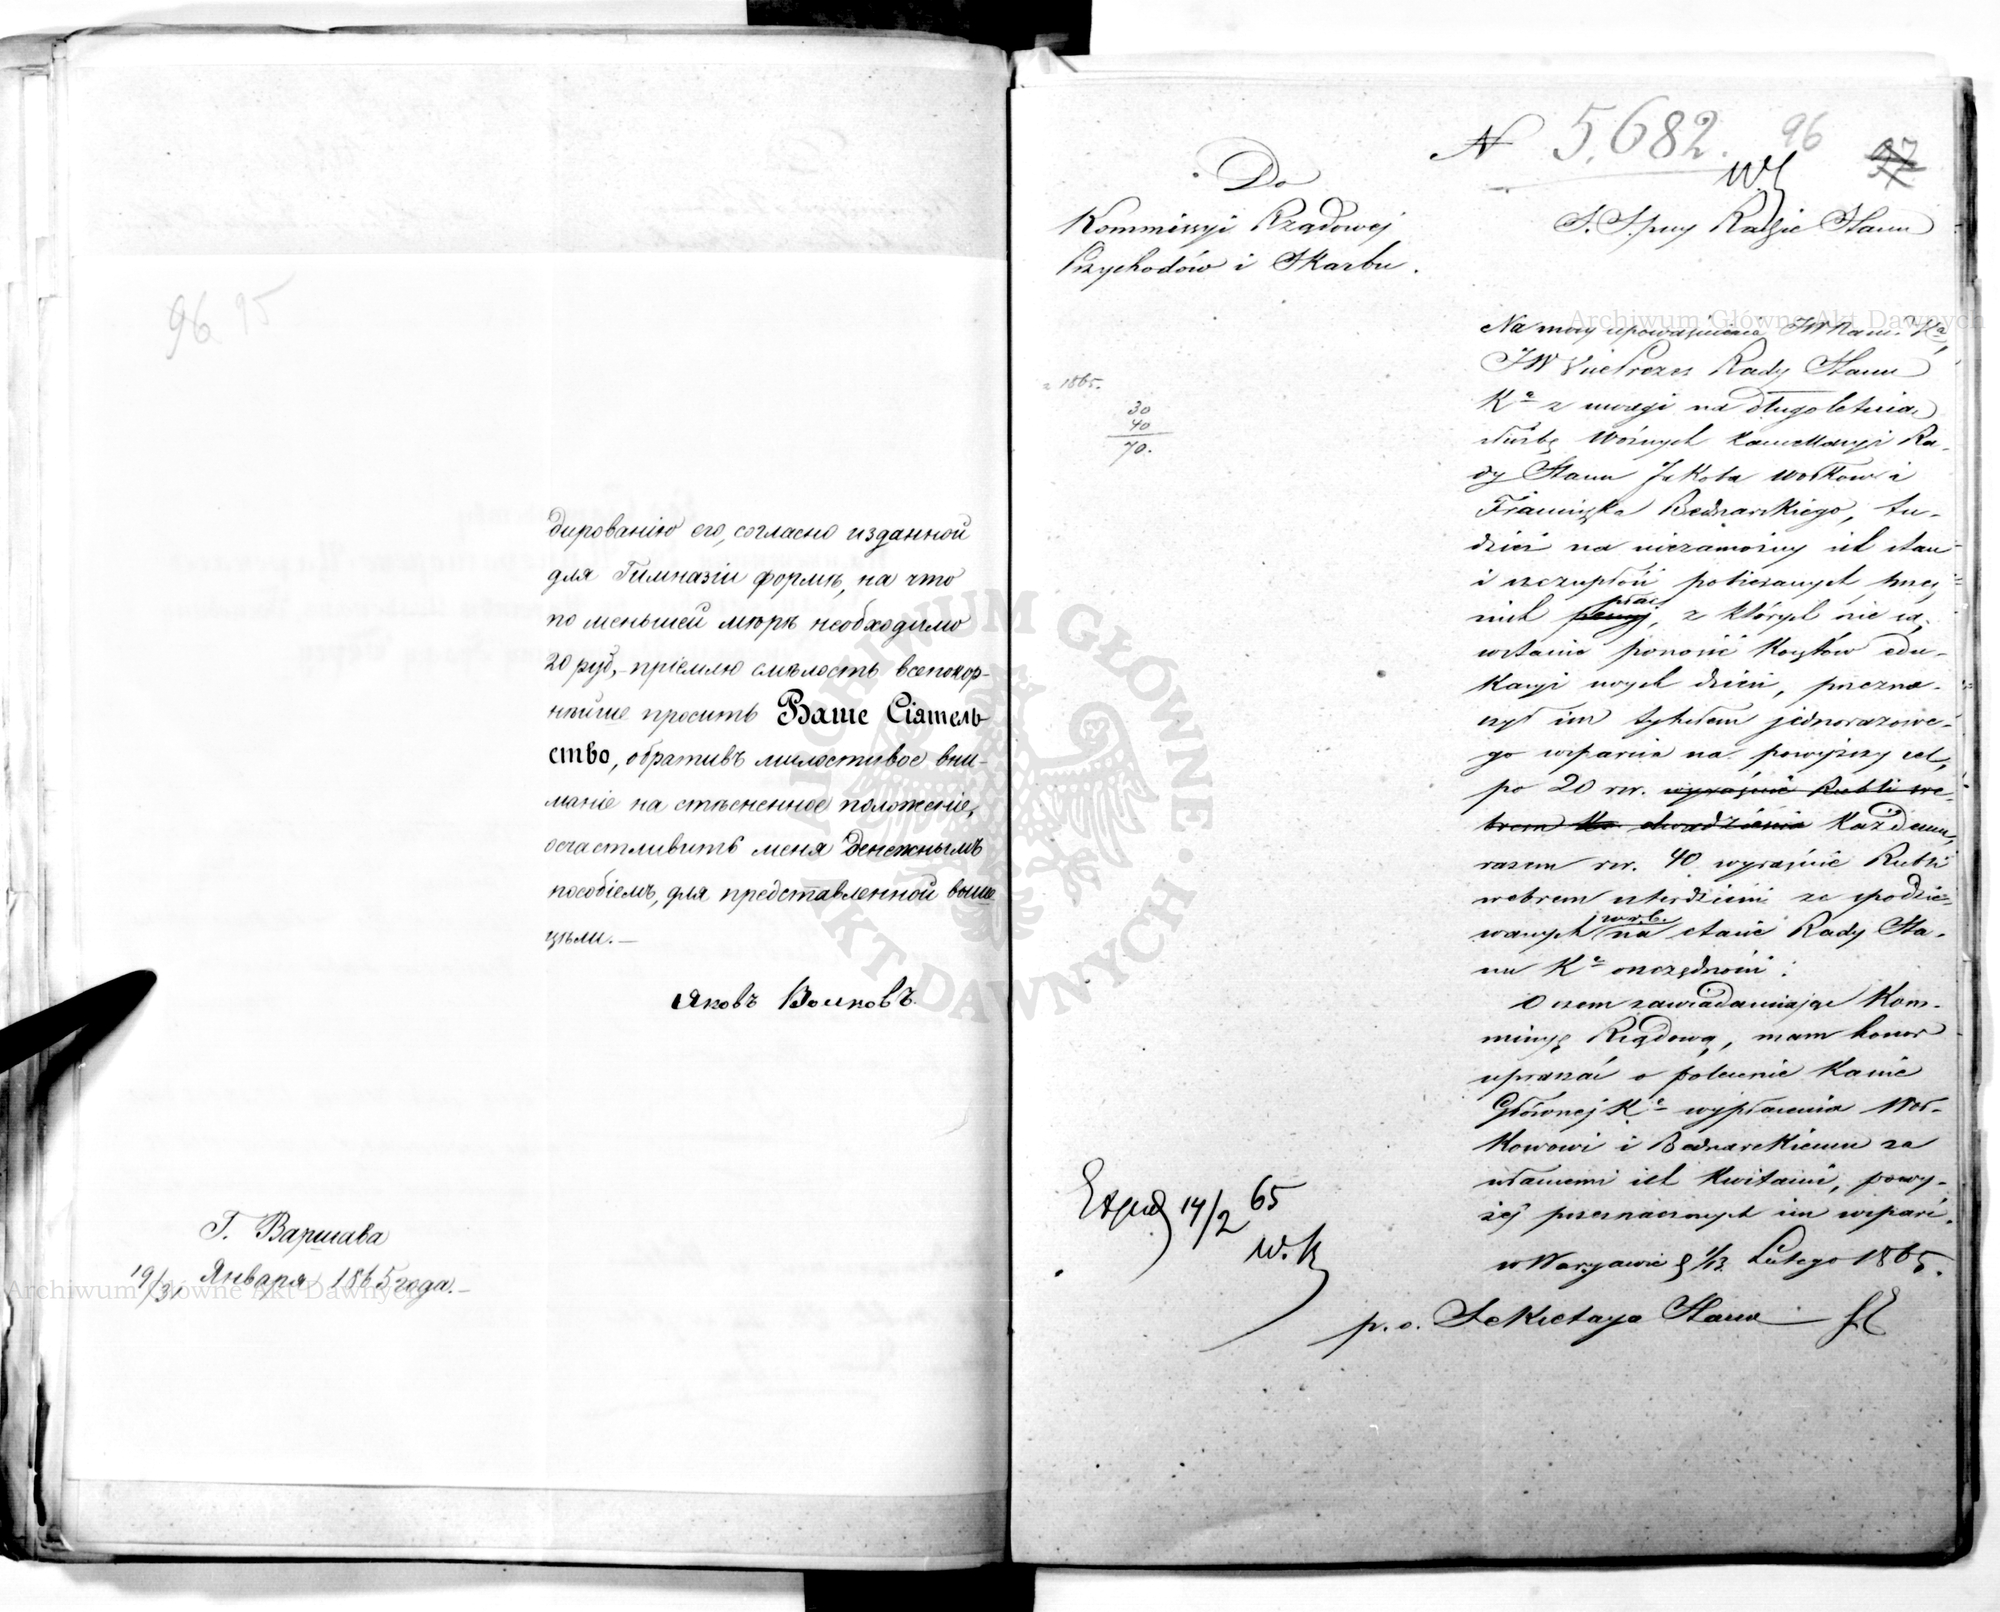 96 95
дированію его, согласно изданной
для Гимназіи формѣ, на что
по меньшей мѣрѣ необходимо
20 руб, - пріемлю смѣлость всепокор-
нѣйше просить Ваше Сіятель-
ство, обративъ милостивое вни-
маніе на стѣсненное положеніе,
осчастливить меня денежнымъ
пособіемъ, для представленной выше
цѣли. —
Яковъ Волковъ.
Г. Варшава
19/31 Января 1865 года. —
N 5,682. 96 97
Do
Kommissyi Rządowej
Przychodów i Skarbu.
S. S. przy Radzie Stanu
z 1865.
30
40
70.
Na mocy upoważnienia JW Nam. Ka,
JW Vice Prezes Rady Stanu
Ka z uwagi na długoletnią
służbę Woźnych Kancellaryi Ra-
dy Stanu Jakóba Wołkow i
Franciszka Bednarskiego, tu-
dzież na niezamożny ich stan
i szczupłość pobieranych przez
nich płac, z których nie są
w stanie ponosić kosztów edu-
kacyi swych dzieci, przezna-
czył im tytułem jednorazowe-
go wsparcia na powyższy cel,
po 20 rsr. wyraźnie Rubli sre-
brem dwadzieścia każdemu,
razem rsr. 40 wyraźnie Rubli
srebrem czterdzieści ze spodzie-
wanych w r. b. na etacie Rady Sta-
nu Ka oszczędności.
O czem zawiadamiając Kom-
missyę Rządową, mam honor
upraszać o polecenie Kassie
Głównej Ka wypłacenia Woł-
kowowi i Bednarskiemu za
własnemi ich kwitami, powy-
żej przeznaczonych im wsparć.
w Warszawie d 1/13 Lutego 1865.
p. o. Sekretarza Stanu
Exped 14/2 65
W.K
Archiwum Główne Akt Dawnych
Archiwum Główne Akt Dawnych
ARCHIWUM GŁÓWNE AKT DAWNYCH